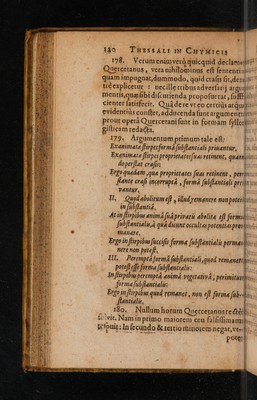 180 THESSALI IN CHYMICIS
178. Verum enim verò quicquid declamet
Quercetanus, vera nihilominus est sententia
quam impugnat, dummodo, quid crasis sit, dex-
tre explicetur: nec ille tribus adversarij argu-
mentis, quæ sibi discutienda proposuerat, suffi-
cienter satisfecit. Quâ de re ut eo certius atque
evidentius constet, adducenda sunt argumenta,
prout operâ Quercetani sunt in formam syllo-
gisticam redacta.
179. Argumentum primum tale est:
Exanimata stirpes forma substantiali privantur.
Exanimata stirpes proprietates suas retinent, quam-
do perstat crasis:
Ergo quædam, quæ proprietates suas retinent, per-
stante crasi incorruptâ, formâ substantiali pri-
vantur.
II. Quod abolitum est, illud remanere non potest
in substantiâ.
At in stirpibus animâ suâ privatis abolita est forma
substantialis, à quâ dicunt occultas potentias pro-
manare.
Ergo in stirpibus succisis forma substantialis perma-
nere non potest.
III. Peremptâ formâ substantiali, quod remanet
potest esse forma substantialis:
In stirpibus peremptâ animâ vegetativâ, perimitur
forma substantialis:
Ergo in stirpibus quod remanet, non est forma sub-
stantialis.
180. Nullum horum Quercetanus rectè
solvit. Nam in primo maiorem ceu falsissimam
arguit: In secundo & tertio minorem negat, ve-